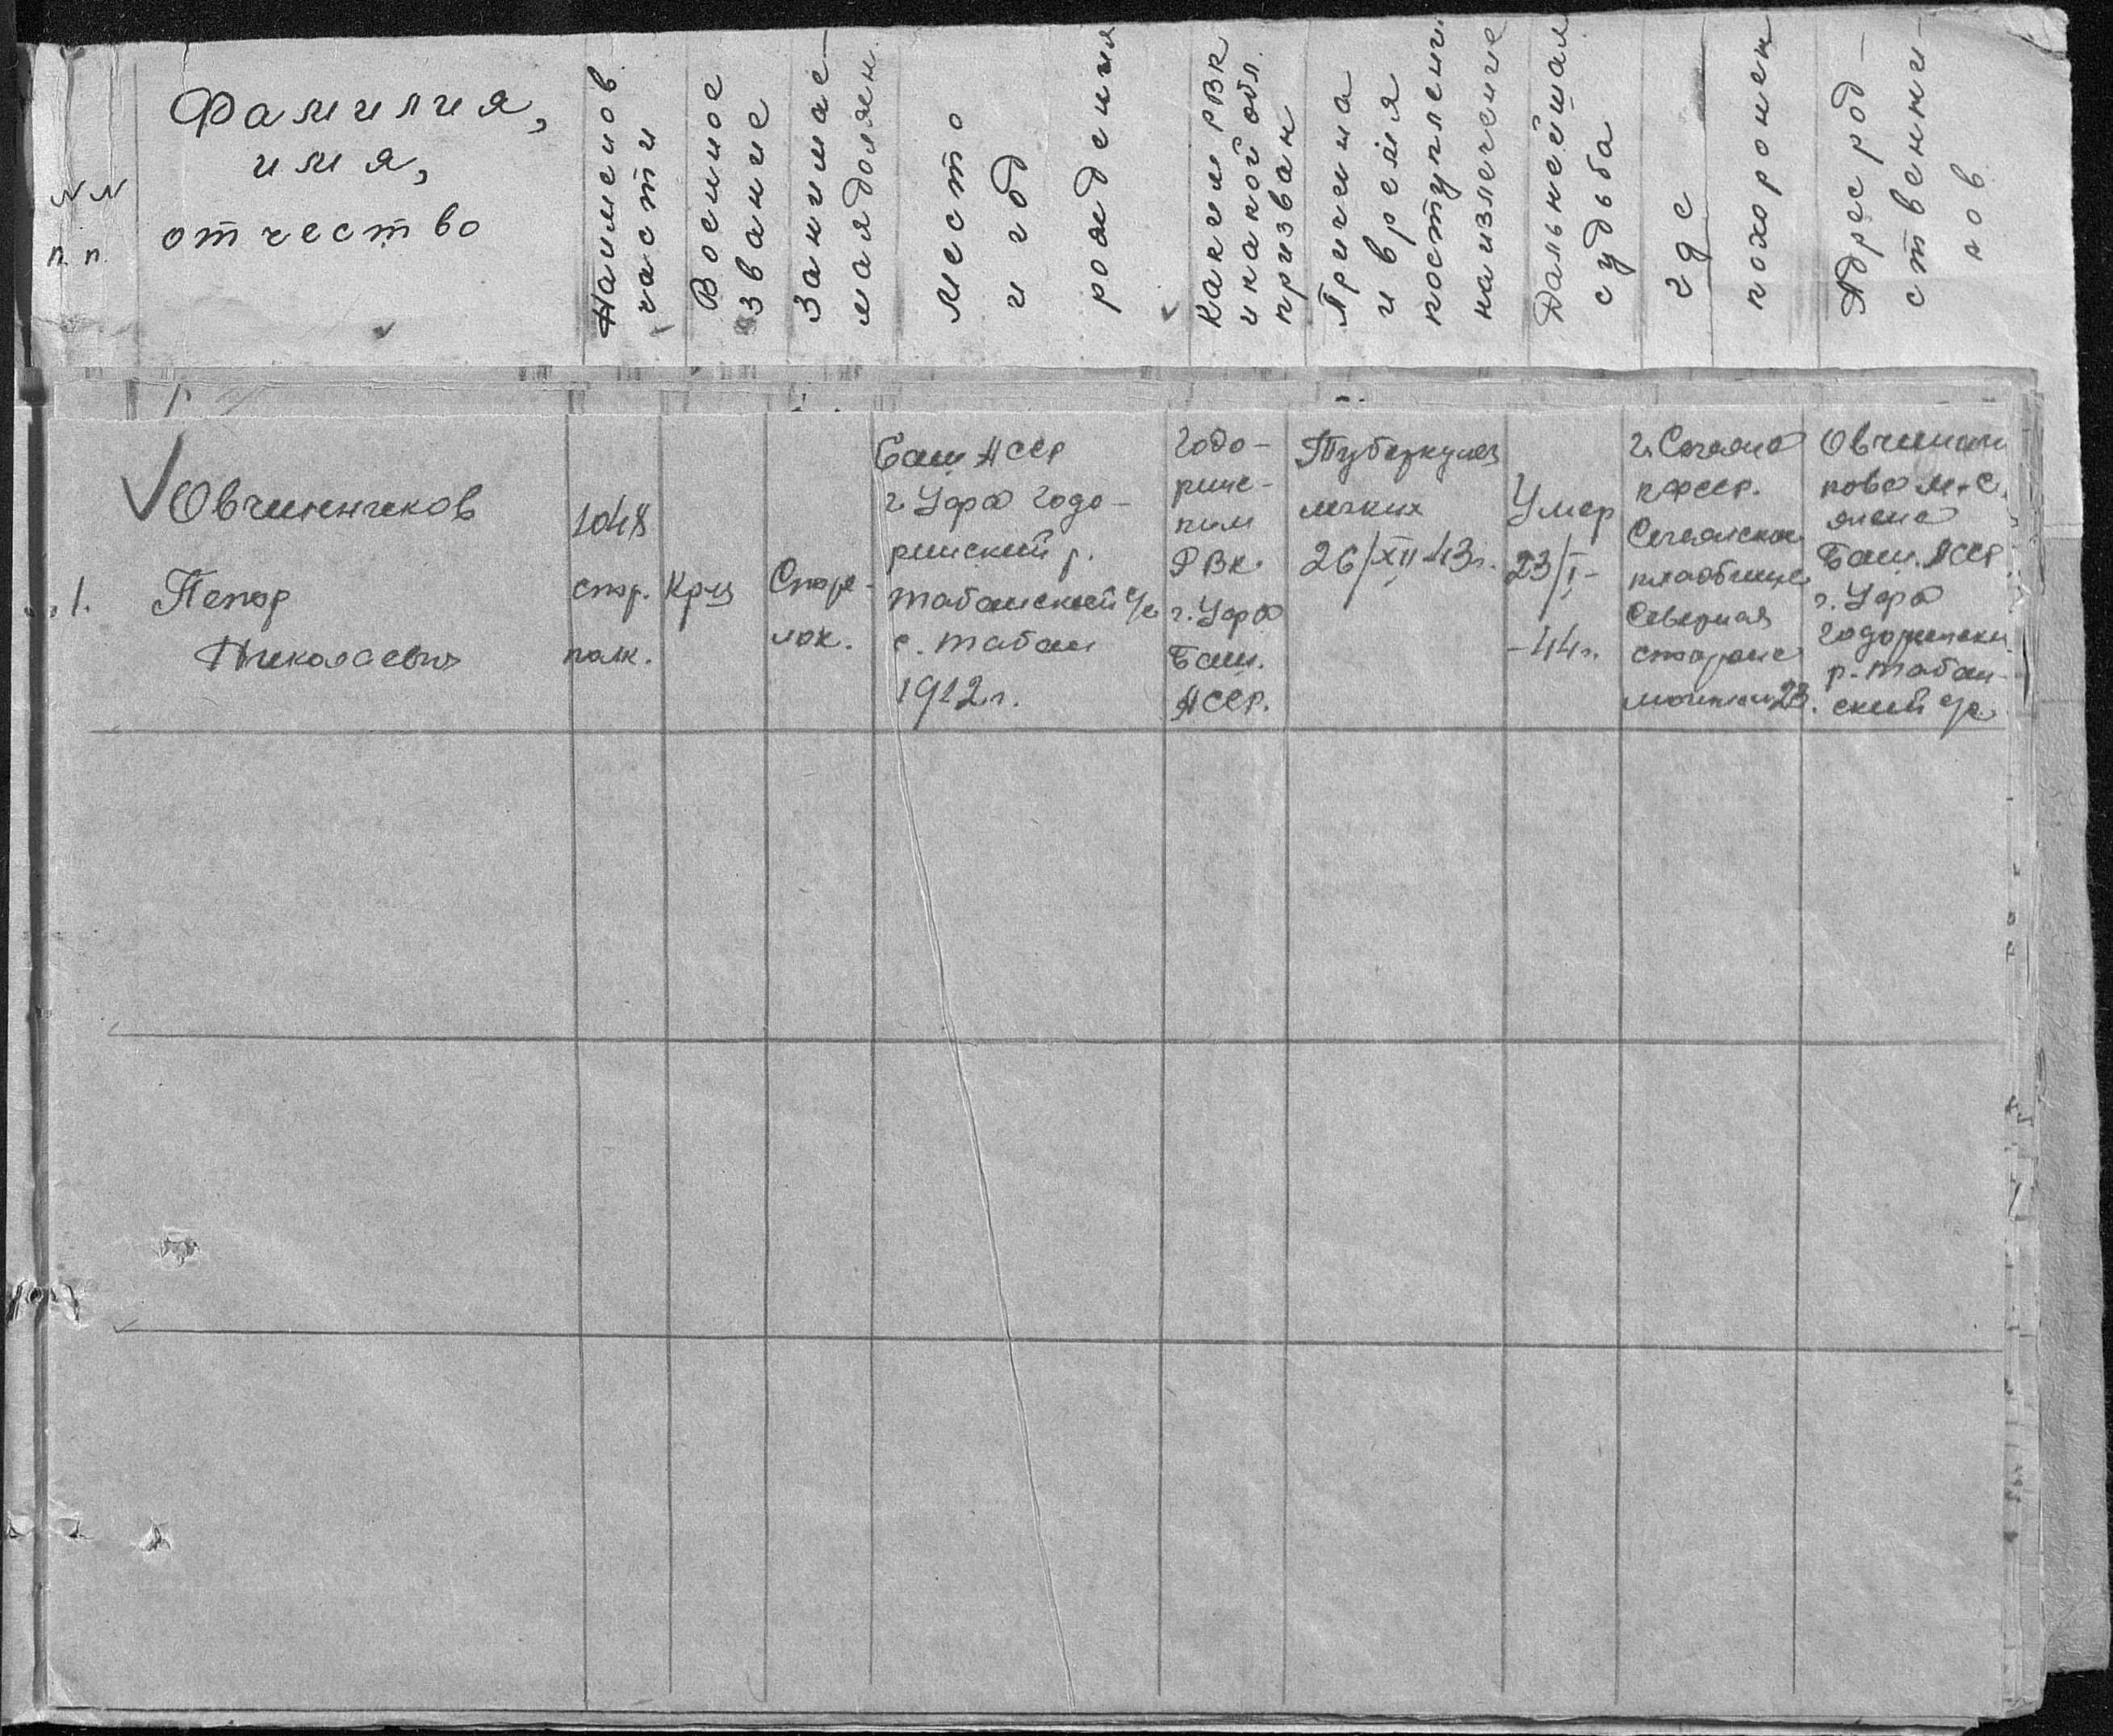 NN
п. п.
Фамилия,
имя,
отчество
Наименов
части
Военное
звание
Занимае-
мая должн.
Место
и год
рождения
Каким РВК
и какой обл.
призван
Причина
и время
поступлени
на излечение
Дальнейшая
судьба
где
похоронен
Адрес род-
ственни-
ков
1.
Овчинников
Петр
Николаевич
1048
стр.
полк.
Кр-ц
Стре-
лок.
Баш АССР
г. Уфа Годо-
ринский р.
Табанский с/с
с. Табан
1912 г.
Годо-
ринс-
ким
РВК
г. Уфа
Баш.
АССР.
Туберкулез
легких
26/XII-43г.
Умер
23/I-
-44г.
кладбище
Северная
стороне
могила 23.
Овчинни
кова М.С.
жена
Баш. АССР
г. Уфа
Годорински
р. Табан-
ский с/с